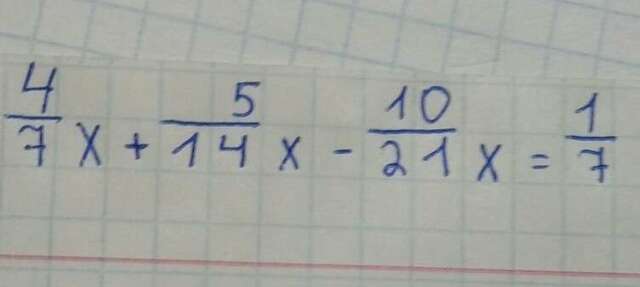 4/7 x + 5/14 x - 10/21 x = 1/7